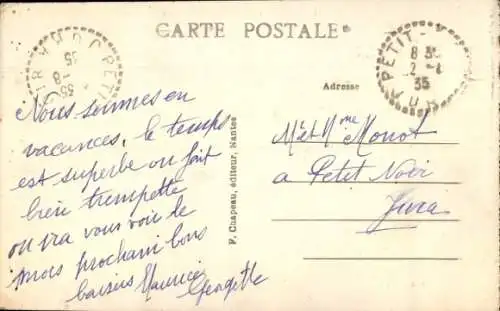 CARTE POSTALE
Adresse
PETIT-
8 35
35
JURA
Nous sommes en
vacances, le temps
est superbe on fait
bien trempette
on ira vous voir le
mois prochain bons
baisers Maurice
Georgette
F. Chapeau, éditeur, Nantes
Mr et Mme Monot
a Petit Noir
Jura